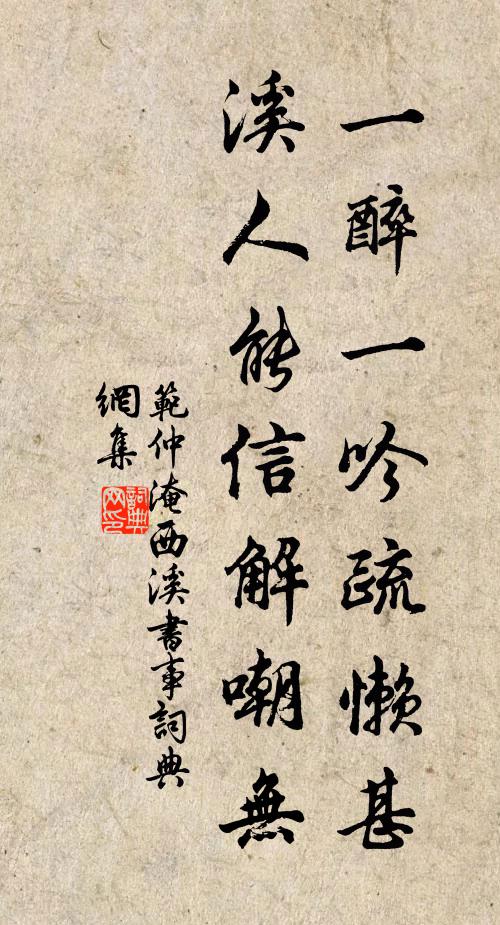 一醉一吟疏懶甚
溪人能信解嘲無
範仲淹西溪書事詞典
網集
詞典网印